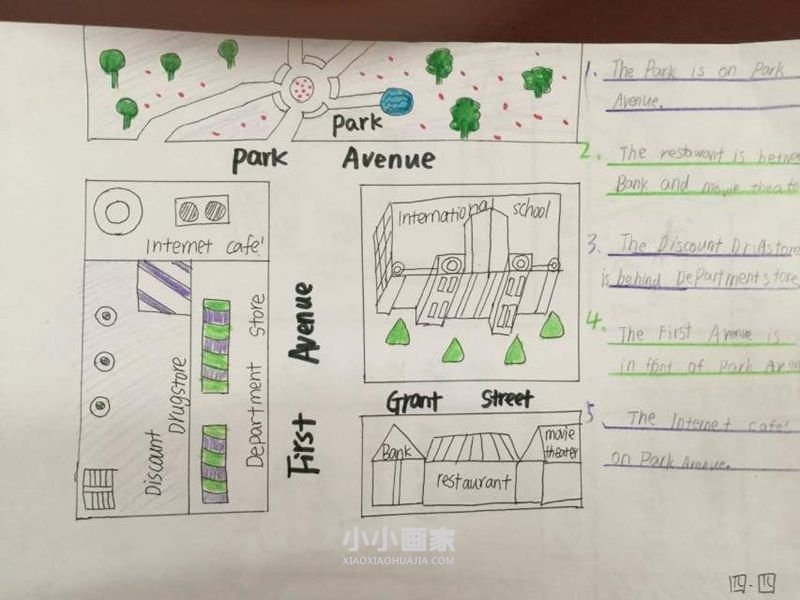 park
park Avenue
Internet cafe'
Discount Drugstore
Department store
First Avenue
International school
Grant Street
Bank
restaurant
movie theater
1. The Park is on Park
Avenue.
2. The restaurant is betwe
Bank and movie theate
3. The Discount Drustore
is behind Department store
4. The First Avenue is
in of Park Ave
5 The Internet cafe'
on Park Avenue.
小小画家
XIAOXIAOHUAJIA.COM
四.四